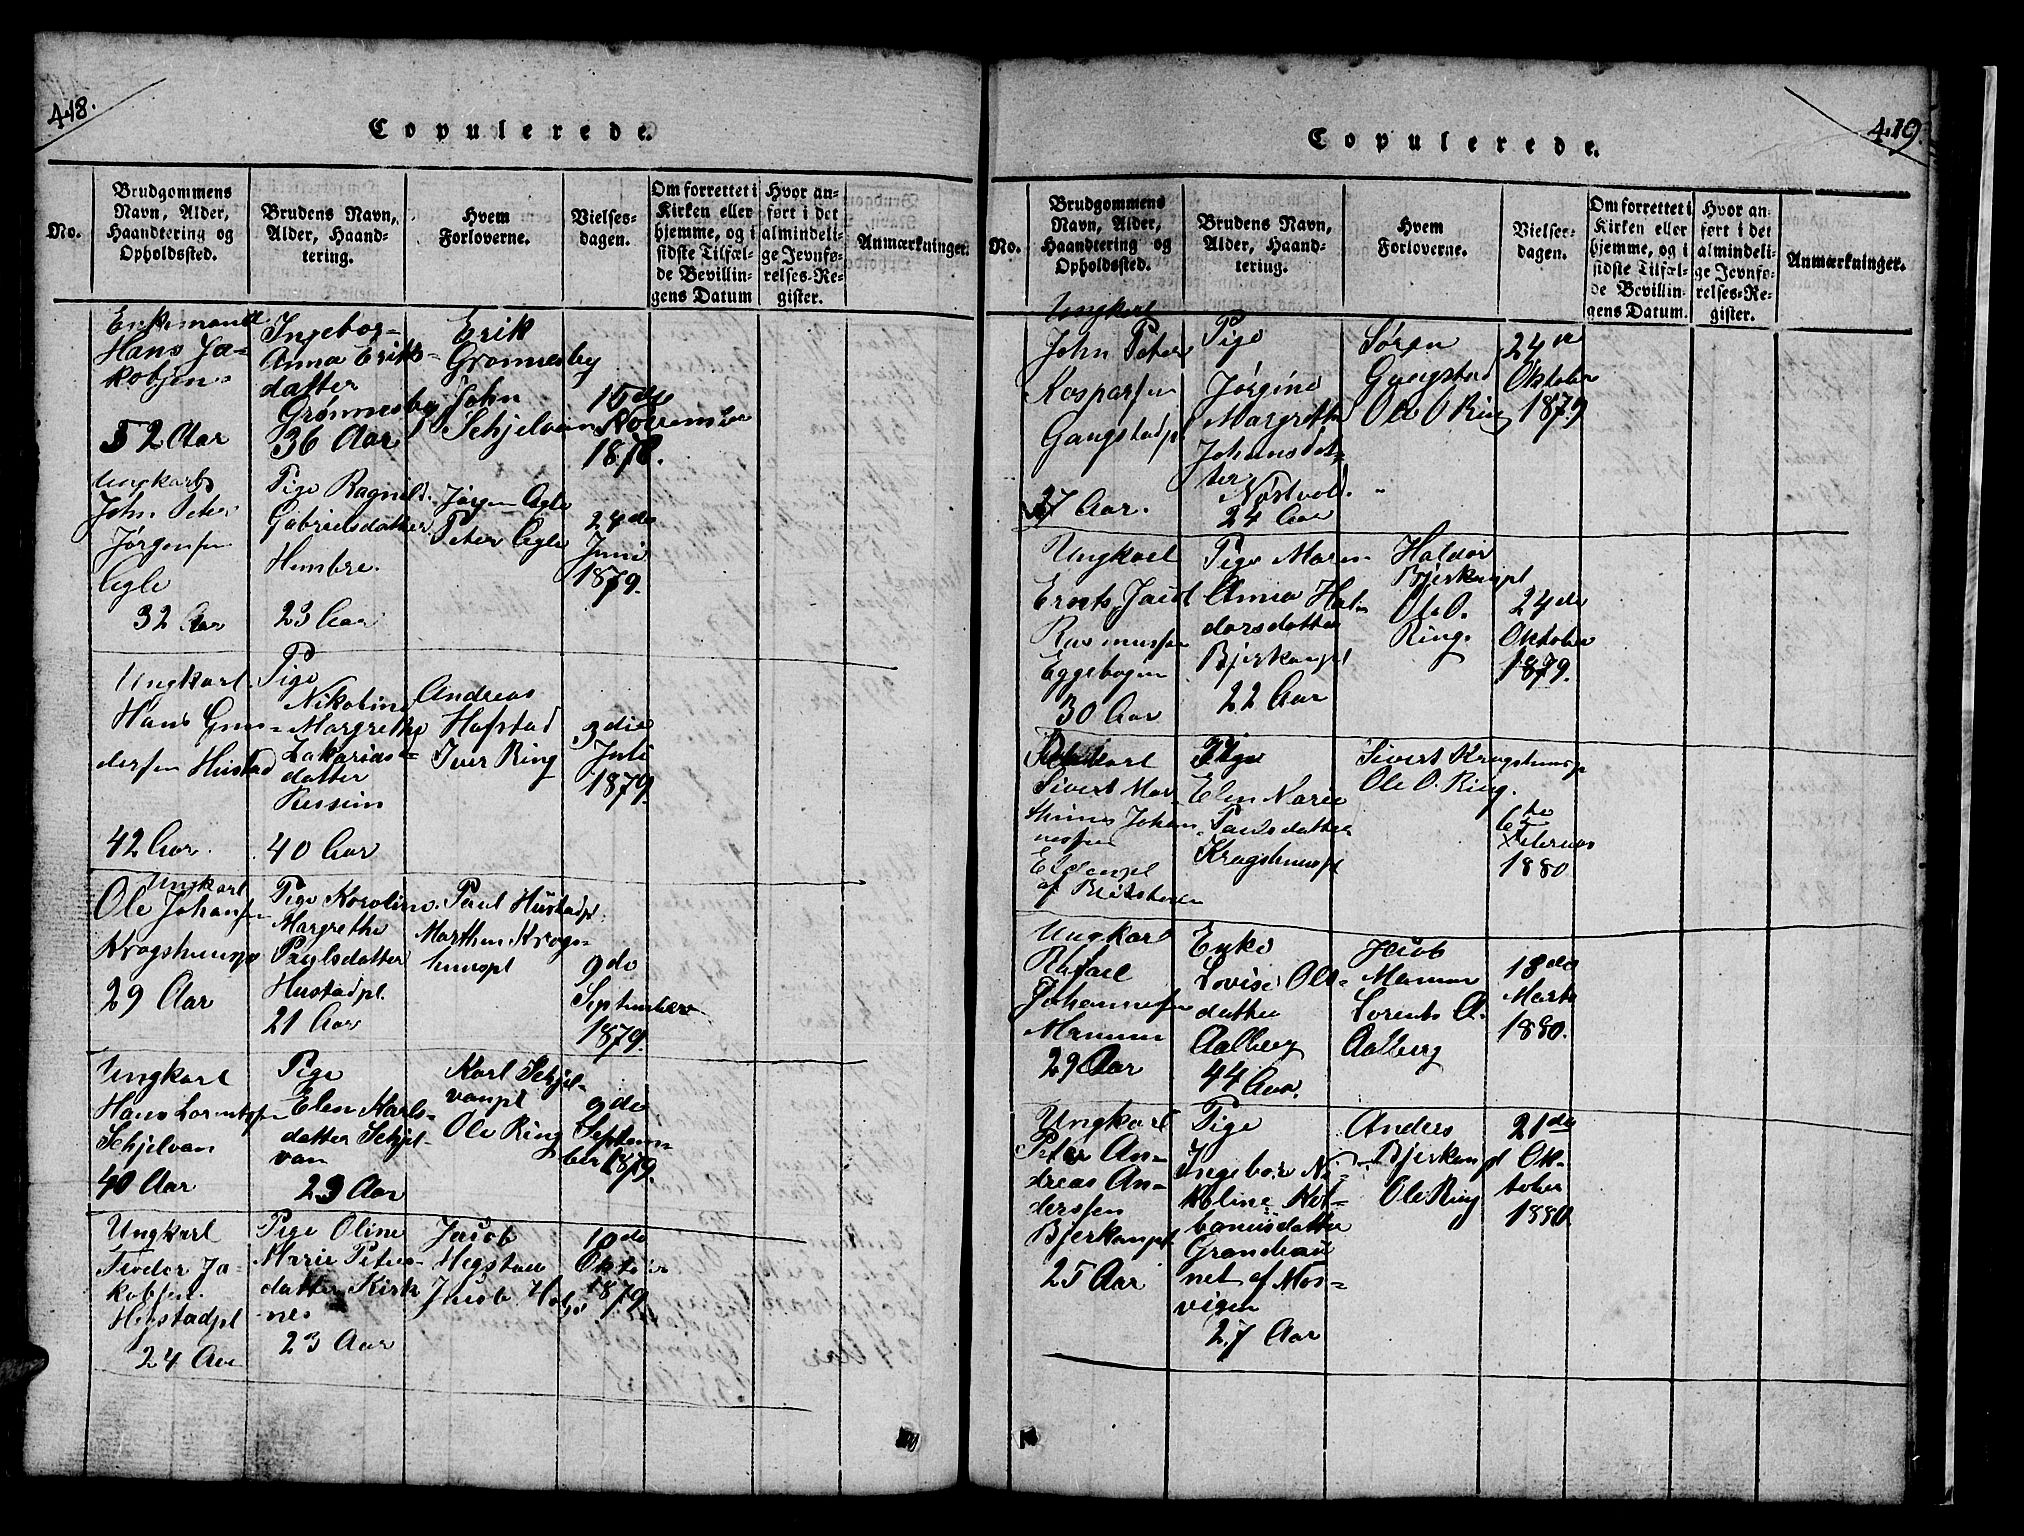 418.
Copulerede.
No.
Brudgommens
Navn, Alder,
Haandtering og
Opholdssted.
Brudens Navn,
Alder, Haand-
tering.
Hvem
Forloverne.
Vielses-
dagen.
Om forrettet i
Kirken eller
hjemme, og i
sidste Tilfæl-
de Bevillin-
gens Datum
Hvor an-
ført i det
almindeli-
ge Jevnfø-
relses-Re-
gister.
Anmærkninger.
Enkemand
Hans Ja-
kobsen
52 Aar
Ingebor-
Anna Eriks-
datter
Grønnesby
36 Aar
Erik
Grønnesby
John
Schjelvan
15de
November
1878.
Ungkarl
John Peter
Jørgensen
Agle
32 Aar
Pige Ragnild
Gabrielsdatter
Hembre.
23 Aar
Jørgen Agle
Peter Agle
24de
Juni
1879.
Ungkarl
Hans Gun-
dersen Hustad
42 Aar.
Pige
Nikoline
Margrethe
Zakarias-
datter
Ressem
40 Aar
Andreas
Hofstad
Iver Ring
3die
Juli
1879.
Ungkarl
Ole Johansen
Krogshuuspl
29 Aar
Pige Karoline
Margrethe
Paulsdatter
Hustadpl.
21 Aar
Paul Hustadpl.
Marthen Krogs-
huuspl
9de
September
1879.
Ungkarl
Hans Lorentsen
Schjelvan
40 Aar
Pige
Elen Karls-
datter Schjel-
van
23 Aar
Karl Schjel-
vanpl
Ole Ring
9de
Septem-
ber 1879.
Ungkarl
Feodor Ja-
kobsen
24 Aar
Pige Oline
Marie Peters-
datter Kirk
nes
23 Aar
Jacob
Megstad
Jacob
10de
Oktober
1879.
419.
Copulerede.
No.
Brudgommens
Navn, Alder,
Haandtering og
Opholdssted.
Brudens Navn,
Alder, Haand-
tering.
Hvem
Forloverne.
Vielses-
dagen.
Om forrettet i
Kirken eller
hjemme, og i
sidste Tilfæl-
de Bevillin-
gens Datum.
Hvor an-
ført i det
almindeli-
ge Jevnfø-
relses-Re-
gister.
Anmærkninger.
Ungkarl
John Peter
Kasparsen
Gangstadpl
27 Aar.
Pige
Jørgine
Margrethe
Johansdat-
ter
Nøstvold.
24 Aar
Søren
Gangstad
Ole O Ring
24de
Oktober
1879
Ungkarl
Ernts Jacob
Rasmussen
Eggebogen
30 Aar
Pige Maren
Anna Hal-
dorsdatter
Bjerkanpl
22 Aar
Haldor
Bjerkanpl
Ole O.
Ring.
24de
Oktober
1879.
Sivert Mar-
thinus Johan
nessen
Pige
Elen Marie
Paulsdatter
Krogshuuspl
Sivert Krogshuuspl
Ole O. Ring.
6te
Februar
1880
Ungkarl
Rafael
Johannesen
Mamen
29 Aar
Enke
Lovise Ols-
datter
Aalberg
44 Aar.
Jacob
Mamen
Lorents A.
Aalberg
18de
Marts
1880.
Ungkarl
Peter An-
dreas An-
dersen
Bjerkanpl
25 Aar
Pige
Ingebor Ni-
koline
Grandeau
net af Mos-
vigen
27 Aar
Anders
Bjerkanpl
Ole Ring
21de
Ok-
tober
1880